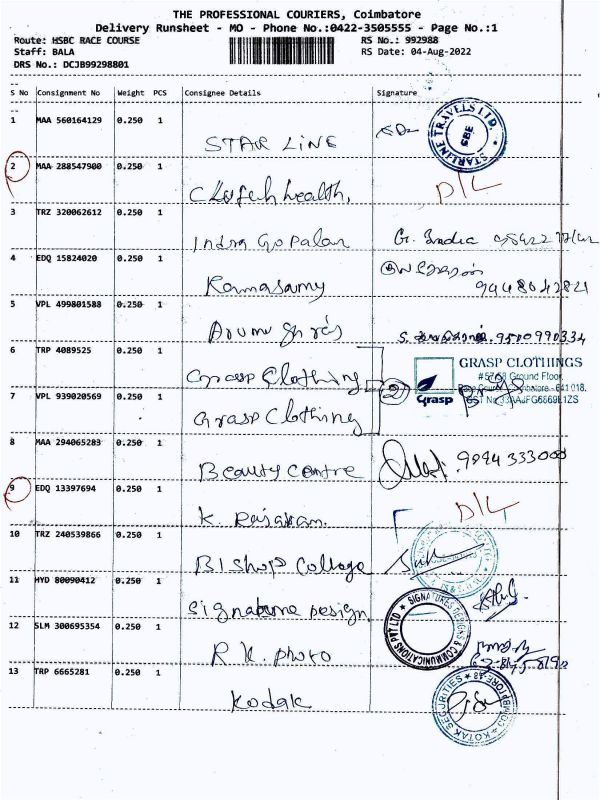 THE PROFESSIONAL COURIERS, Coimbatore
Delivery Runsheet - MO - Phone No.:0422-3505555 - Page No.:1
Route: HSBC RACE COURSE RS No.: 992988
Staff: BALA RS Date: 04-Aug-2022
DRS No.: DCJB99298801
S No Consignment No Weight PCS Consignee Details Signature
1 MAA 560164129 0.250 1 STAR LINE
STARLINE TRAVELS LTD. CBE
2 MAA 288547900 0.250 1 health, D/L
3 TRZ 320062612 0.250 1 Indra Gopalan G. India
4 EDQ 15824020 0.250 1 Ramasamy
5 VPL 499801588 0.250 1 Arumu 9500990334
6 TRP 4089525 0.250 1 Grasp Clothing
GRASP CLOTHINGS
#57/58 Ground Floor,
Grasp
7 VPL 939020569 0.250 1 Grasp Clothing 2
8 MAA 294065283 0.250 1 Beauty Centre
9 EDQ 13397694 0.250 1 K. Rajaram. D/L
10 TRZ 240539866 0.250 1 Bishop College
11 HYD 80090412 0.250 1 Signature Design
SIGNATURES DESIGNS & COMMUNICATIONS PVT LTD
12 SLM 300695354 0.250 1 R K. photo
13 TRP 6665281 0.250 1 Kodak
KOTAK SECURITIES